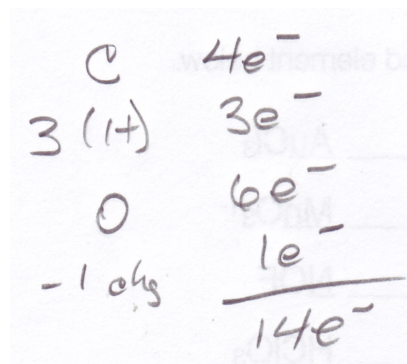 C 4e⁻
3 (H) 3e⁻
O 6e⁻
-1 chg 1e⁻
14e⁻